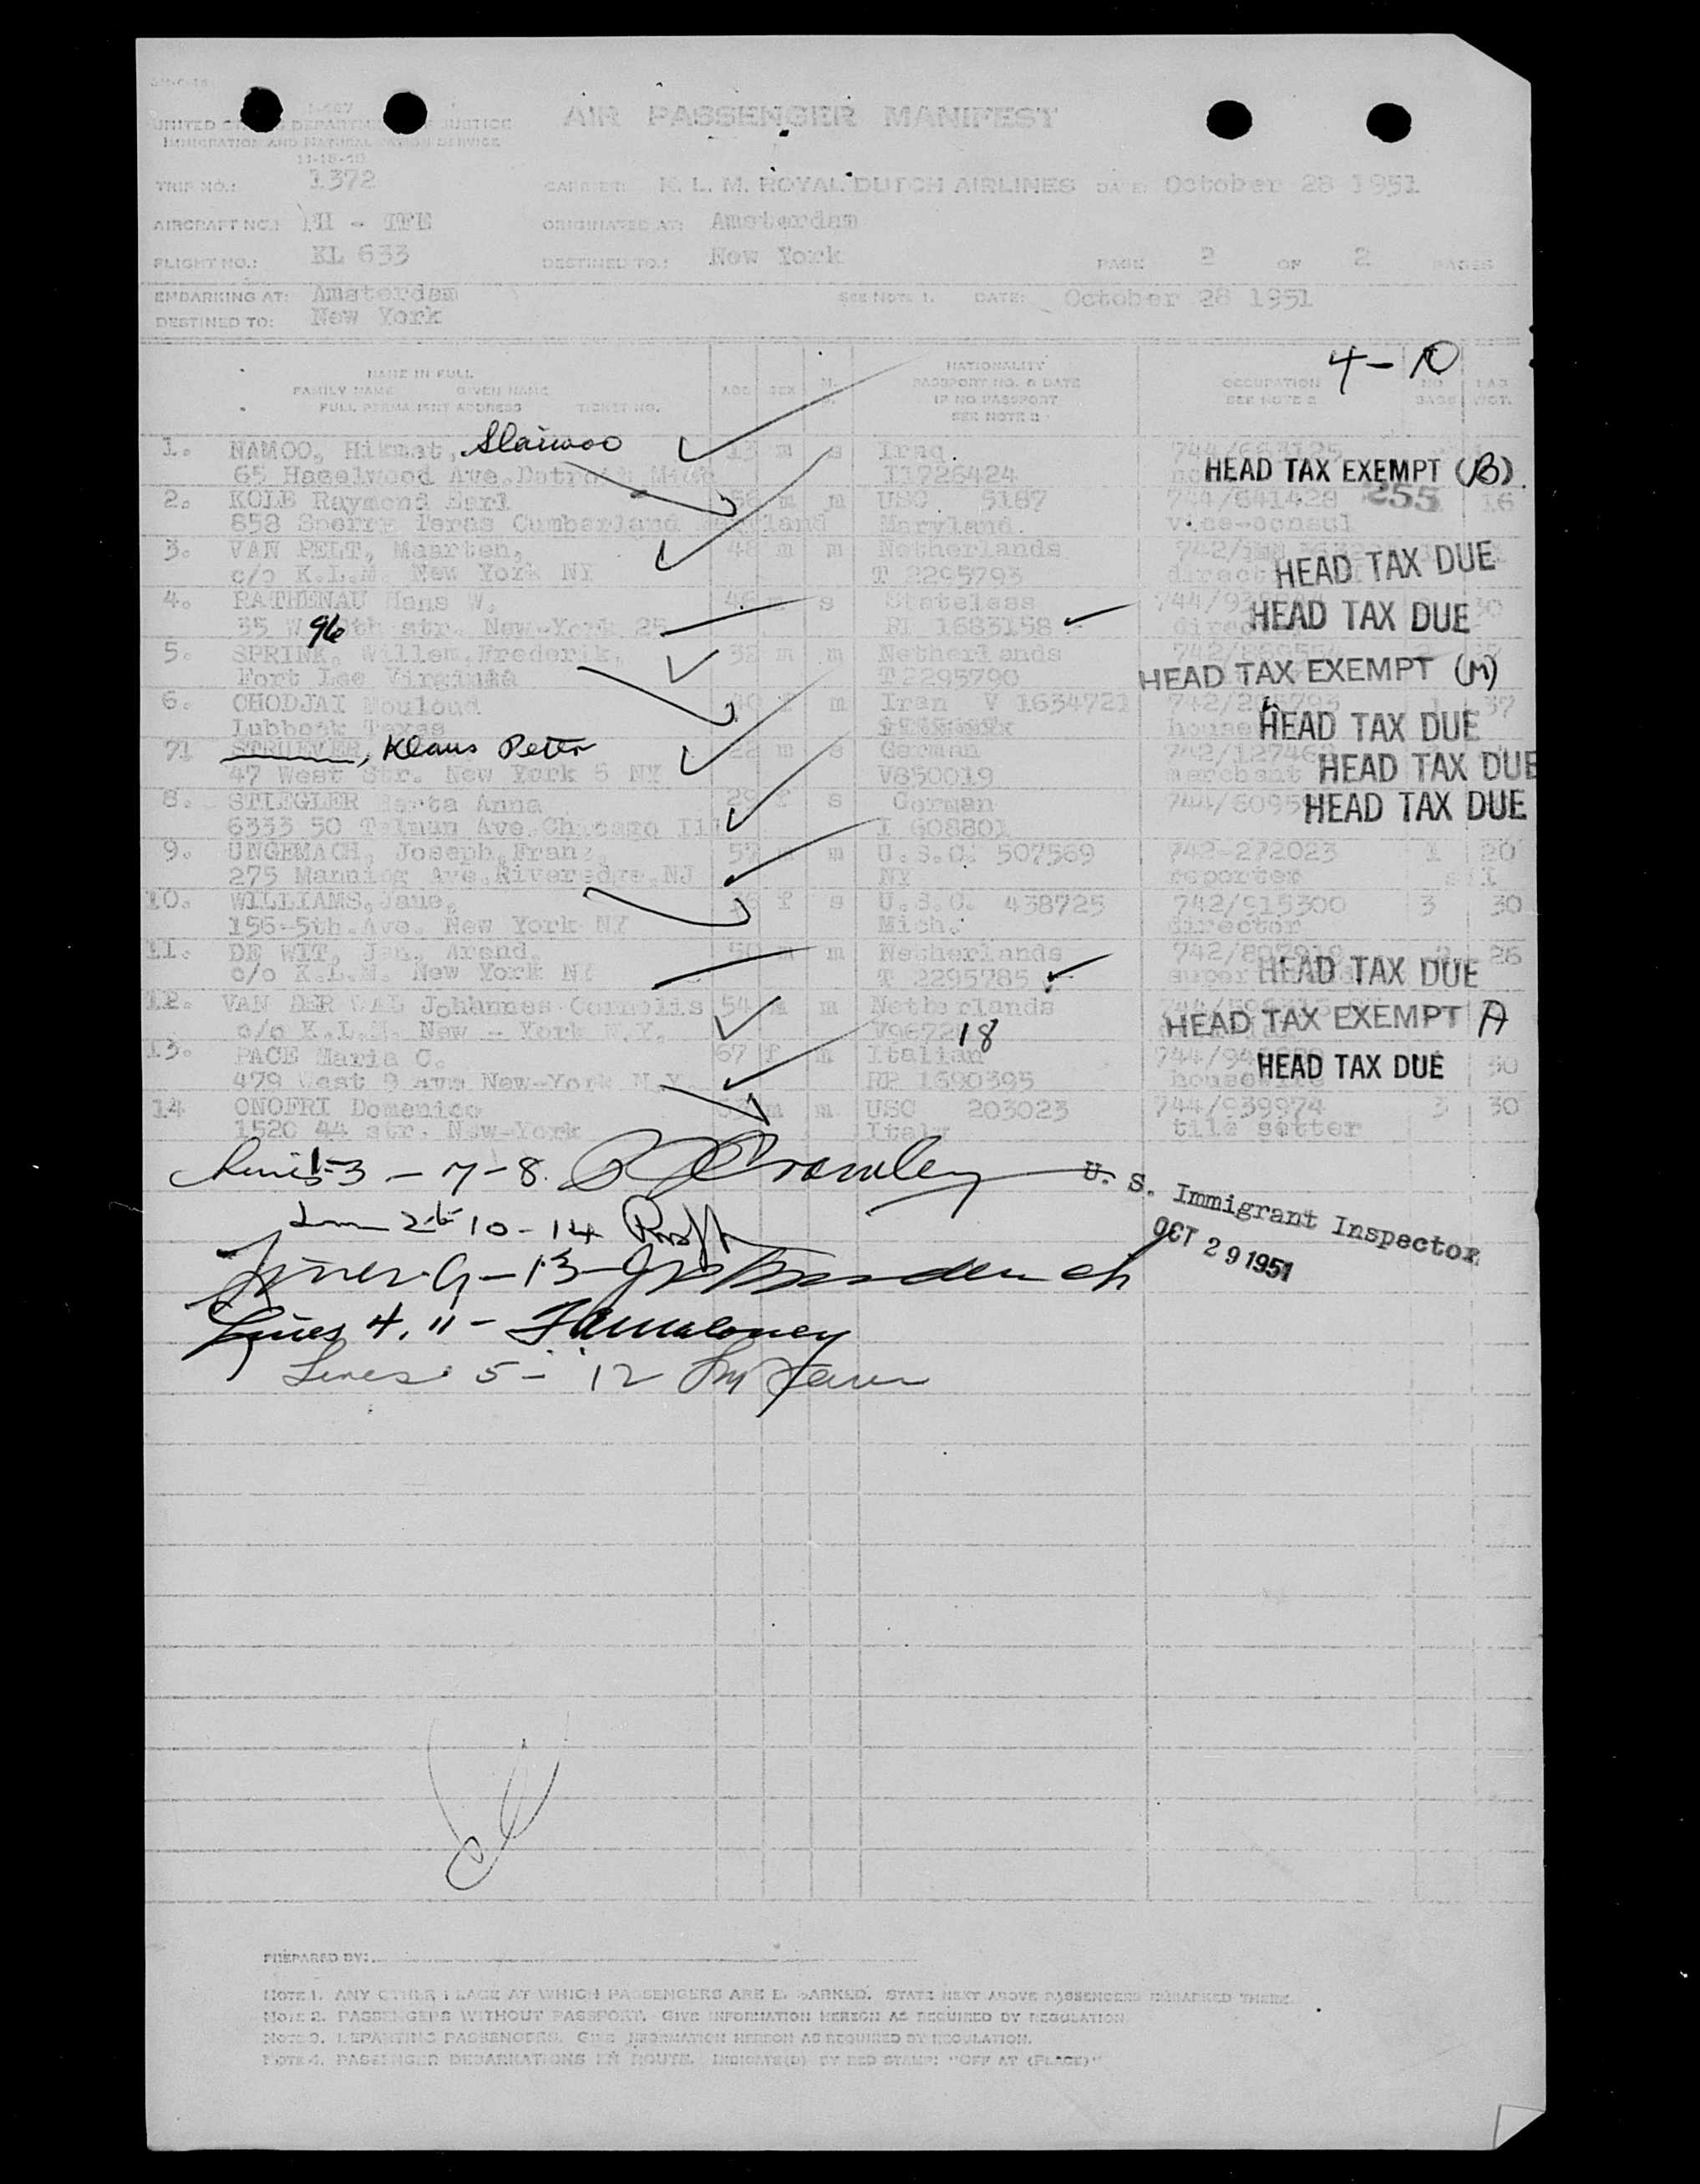 I-467
UNITED STATES DEPARTMENT OF JUSTICE
IMMIGRATION AND NATURALIZATION SERVICE
11-18-40
AIR PASSENGER MANIFEST
TRIP NO.: 1372 CARRIER: K. L. M. ROYAL DUTCH AIRLINES DATE: October 28 1951
AIRCRAFT NO.: PH - TFE ORIGINATED AT: Amsterdam
FLIGHT NO.: KL 633 DESTINED TO.: New York PAGE 2 OF 2 PAGES
EMBARKING AT: Amsterdam SEE NOTE 1. DATE: October 28 1951
DESTINED TO: New York
4-10
NAME IN FULL
FAMILY NAME GIVEN NAME
FULL PERMANENT ADDRESS TICKET NO.
AGE SEX M. S.
NATIONALITY
PASSPORT NO. & DATE
IF NO PASSPORT
SEE NOTE 2
OCCUPATION
SEE NOTE 2
NO. BAGS BAG. WGT.
1. NAMOO, Hikmat, Slaiwoo 13 m s Iraq.
65 Hazelwood Ave. Detroit Mich I1726424
HEAD TAX EXEMPT (B)
2. KOLE Raymond Earl 58 m m USC 5187 744/641428 255 16
858 Sperry Teras Cumberland Maryland Maryland. vice-consul
3. VAN PELT, Maarten, 48 m m Netherlands
c/o K.L.M. New York NY T 2295793 HEAD TAX DUE
4. RATHENAU Hans W. 46 m s Stateless 30
35 W 96th str. New-York 25 RP 1683158 HEAD TAX DUE
5. SPRINK, Willem, Frederik, 32 m m Netherlands 742/869554
Fort Lee Virginia T 2295790 HEAD TAX EXEMPT (M)
6. CHODJAI Mouloud 40 f m Iran V 1634721 37
Lubbock Texas HEAD TAX DUE
7. STRUEVER, Klaus Peter 22 m s German
47 West Str. New York 6 NY V850019 merchant HEAD TAX DUE
8. STIEGLER Herta Anna 29 f s German
6333 50 Talman Ave. Chicago Ill I 608801 HEAD TAX DUE
9. UNGEMACH, Joseph, Franz, 57 m m U.S.C. 507569 742-272023 1 20
275 Manning Ave. Riveredge, NJ NY reporter
10. WILLIAMS, Jane, f s U.S.C. 438725 742/915300 3 30
156-5th.Ave. New York NY Mich. director
11. DE WIT, Jan, Arend. 50 m m Netherlands 26
c/o K.L.M. New York NY T 2295785 HEAD TAX DUE
12. VAN DER WAL Johannes Cornelis 54 m m Netherlands
c/o K.L.M. New - York N.Y. V9672 18 HEAD TAX EXEMPT A
13. PACE Maria C. 67 f m Italian 30
479 West 9 Ave New-York N.Y. RP 1690395 housewife HEAD TAX DUE
14 ONOFRI Domenico m m USC 203023 744/939974 3 30
1520 44 str. New-York Italy tile setter
Lines 1-3 - 7-8. Crowley U. S. Immigrant Inspector
OCT 29 1951
2-6-10-14
Lines 9-13
Lines 4, 11 - Maloney
Lines 5 - 12
PREPARED BY:
NOTE 1. ANY OTHER PLACE AT WHICH PASSENGERS ARE EMBARKED. STATE NEXT ABOVE PASSENGERS EMBARKED THERE.
NOTE 2. PASSENGERS WITHOUT PASSPORT. GIVE INFORMATION HEREON AS REQUIRED BY REGULATION
NOTE 3. DEPARTING PASSENGERS. GIVE INFORMATION HEREON AS REQUIRED BY REGULATION.
NOTE 4. PASSENGER DEBARKATIONS EN ROUTE. INDICATE(D) BY RED STAMP: "OFF AT (PLACE)"